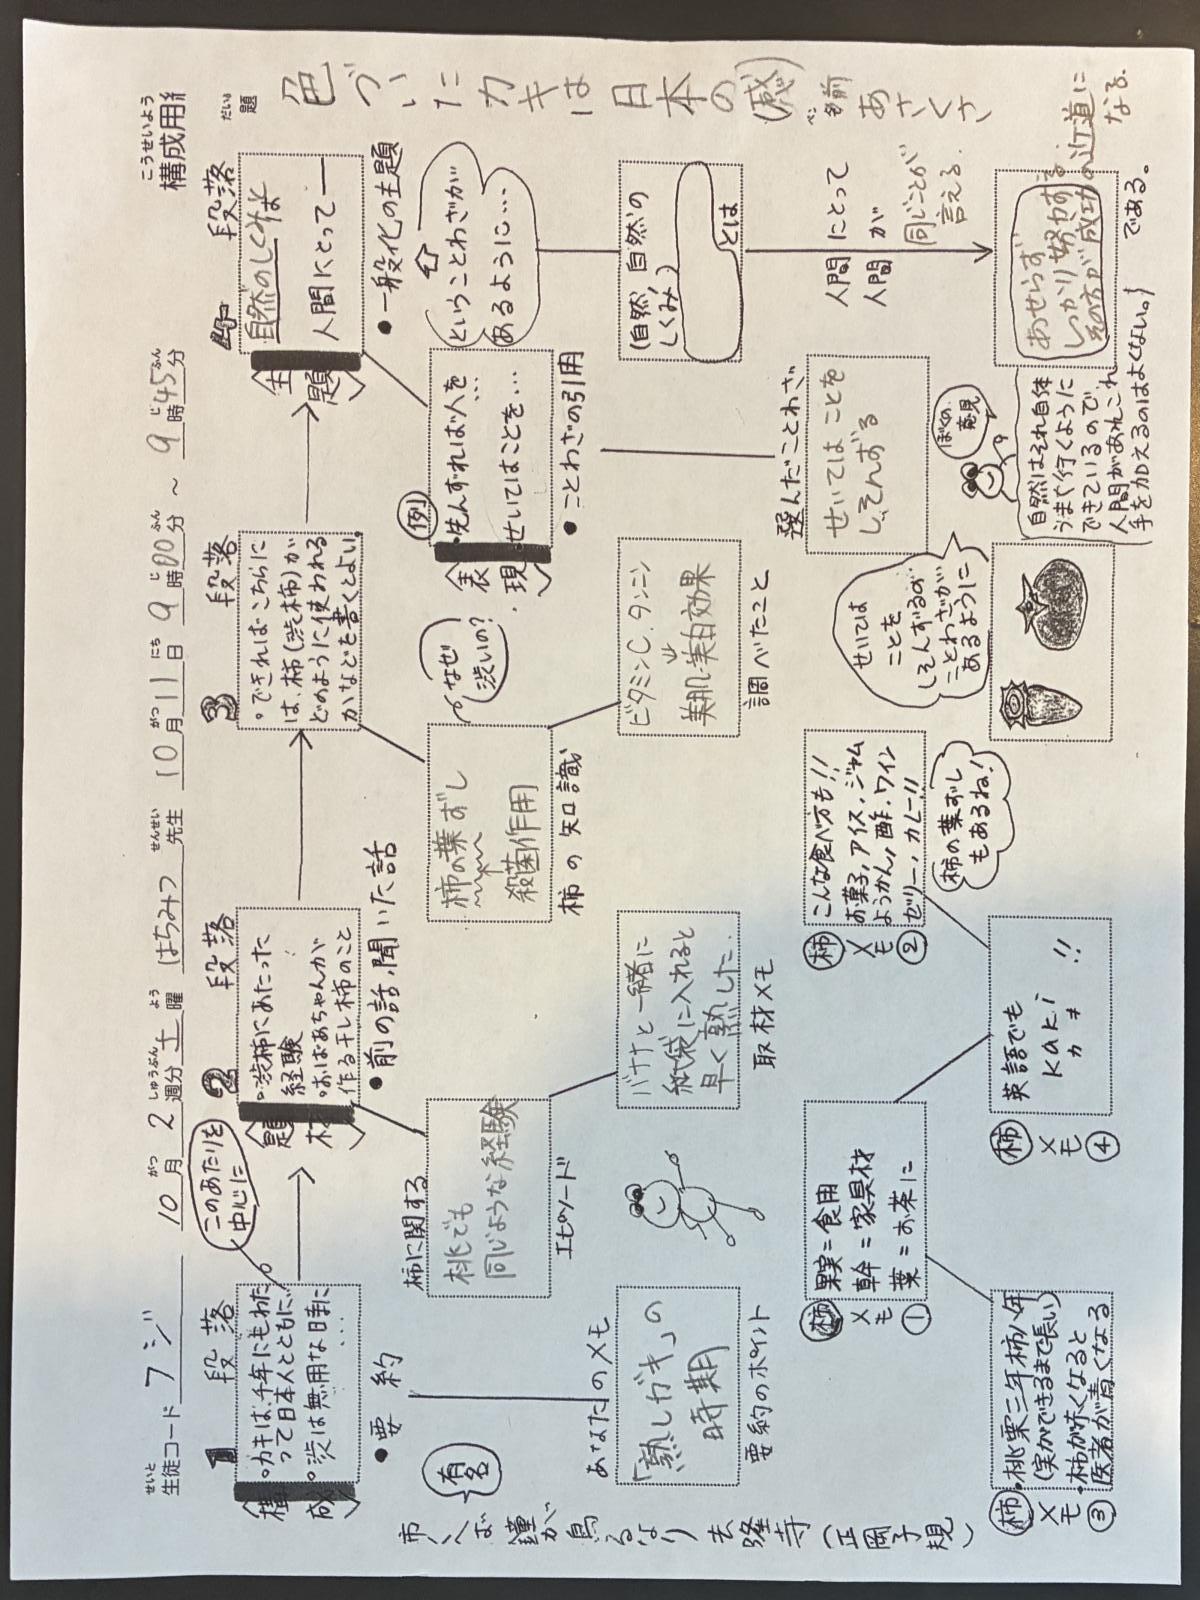 こうせいよう
構成用
だい
題
色づいたカキは日本の(感)
名前
あさくさ
せいと
生徒コード フジ
10月 2週分 土曜 はちみつ先生 10月11日 9時00分 ~ 9時45分
がつ しゅうぶん よう せんせい がつ にち じ ふん じ ふん
1 段落
〈構成〉
・カキは、千年にもわた
って日本人とともに…
・渋は無用な日時に
・・・・
このあたりを
中心に
・要約
あなたのメモ
「熟しガキ」の
時期
要約のポイント
2 段落
〈題材〉
・渋柿にあたった
経験
・おばあちゃんが
作る干し柿のこと
・前の話、聞いた話
柿に関する
桃でも
同じような経験
エピソード
バナナと一緒に
紙袋に入れると
早く熟した.
取材メモ
3 段落
・できればこちらに
は、柿(渋柿)が
どのように使われる
かなどを書くとよい。
柿の葉ずし
殺菌作用
柿の知識
なぜ
渋いの?
ビタミンC.タンニン
美肌・美白効果
調べたこと
4 段落
〈主題〉
自然のしくみは
人間にとって―
・一般化の主題
ということわざが
あるように…
〈表現〉
(例)
・先んずれば人を…
・せいてはことを…
・ことわざの引用
選んだことわざ
せいてはことを
しそんずる
(自然)自然の
しくみ)
とは
人間にとって
人間が
同じことが
言える.
あせらず
しっかり努力する
その方が成功の近道に
なる.
である。
ぼくの、
意見
自然はそれ自体
うまく行くように
できているので
人間があれこれ
手を加えるのはよくない。
せいては
ことを
しそんずるの
ことわざが
あるように
有名
柿くへば鐘が鳴るなり法隆寺(正岡子規)
柿メモ①
果実=食用
幹=家具材
葉=お茶に
柿メモ②
こんな食べ方も!!
お菓子,アイス,ジャム
ようかん,酢.ワイン
ゼリー,カレー!!
柿の葉ずし
もあるね!
柿メモ③
・桃栗三年柿八年
(実ができるまで長い)
・柿が赤くなると
医者が青くなる
柿メモ④
英語でも
kaki
カキ !!